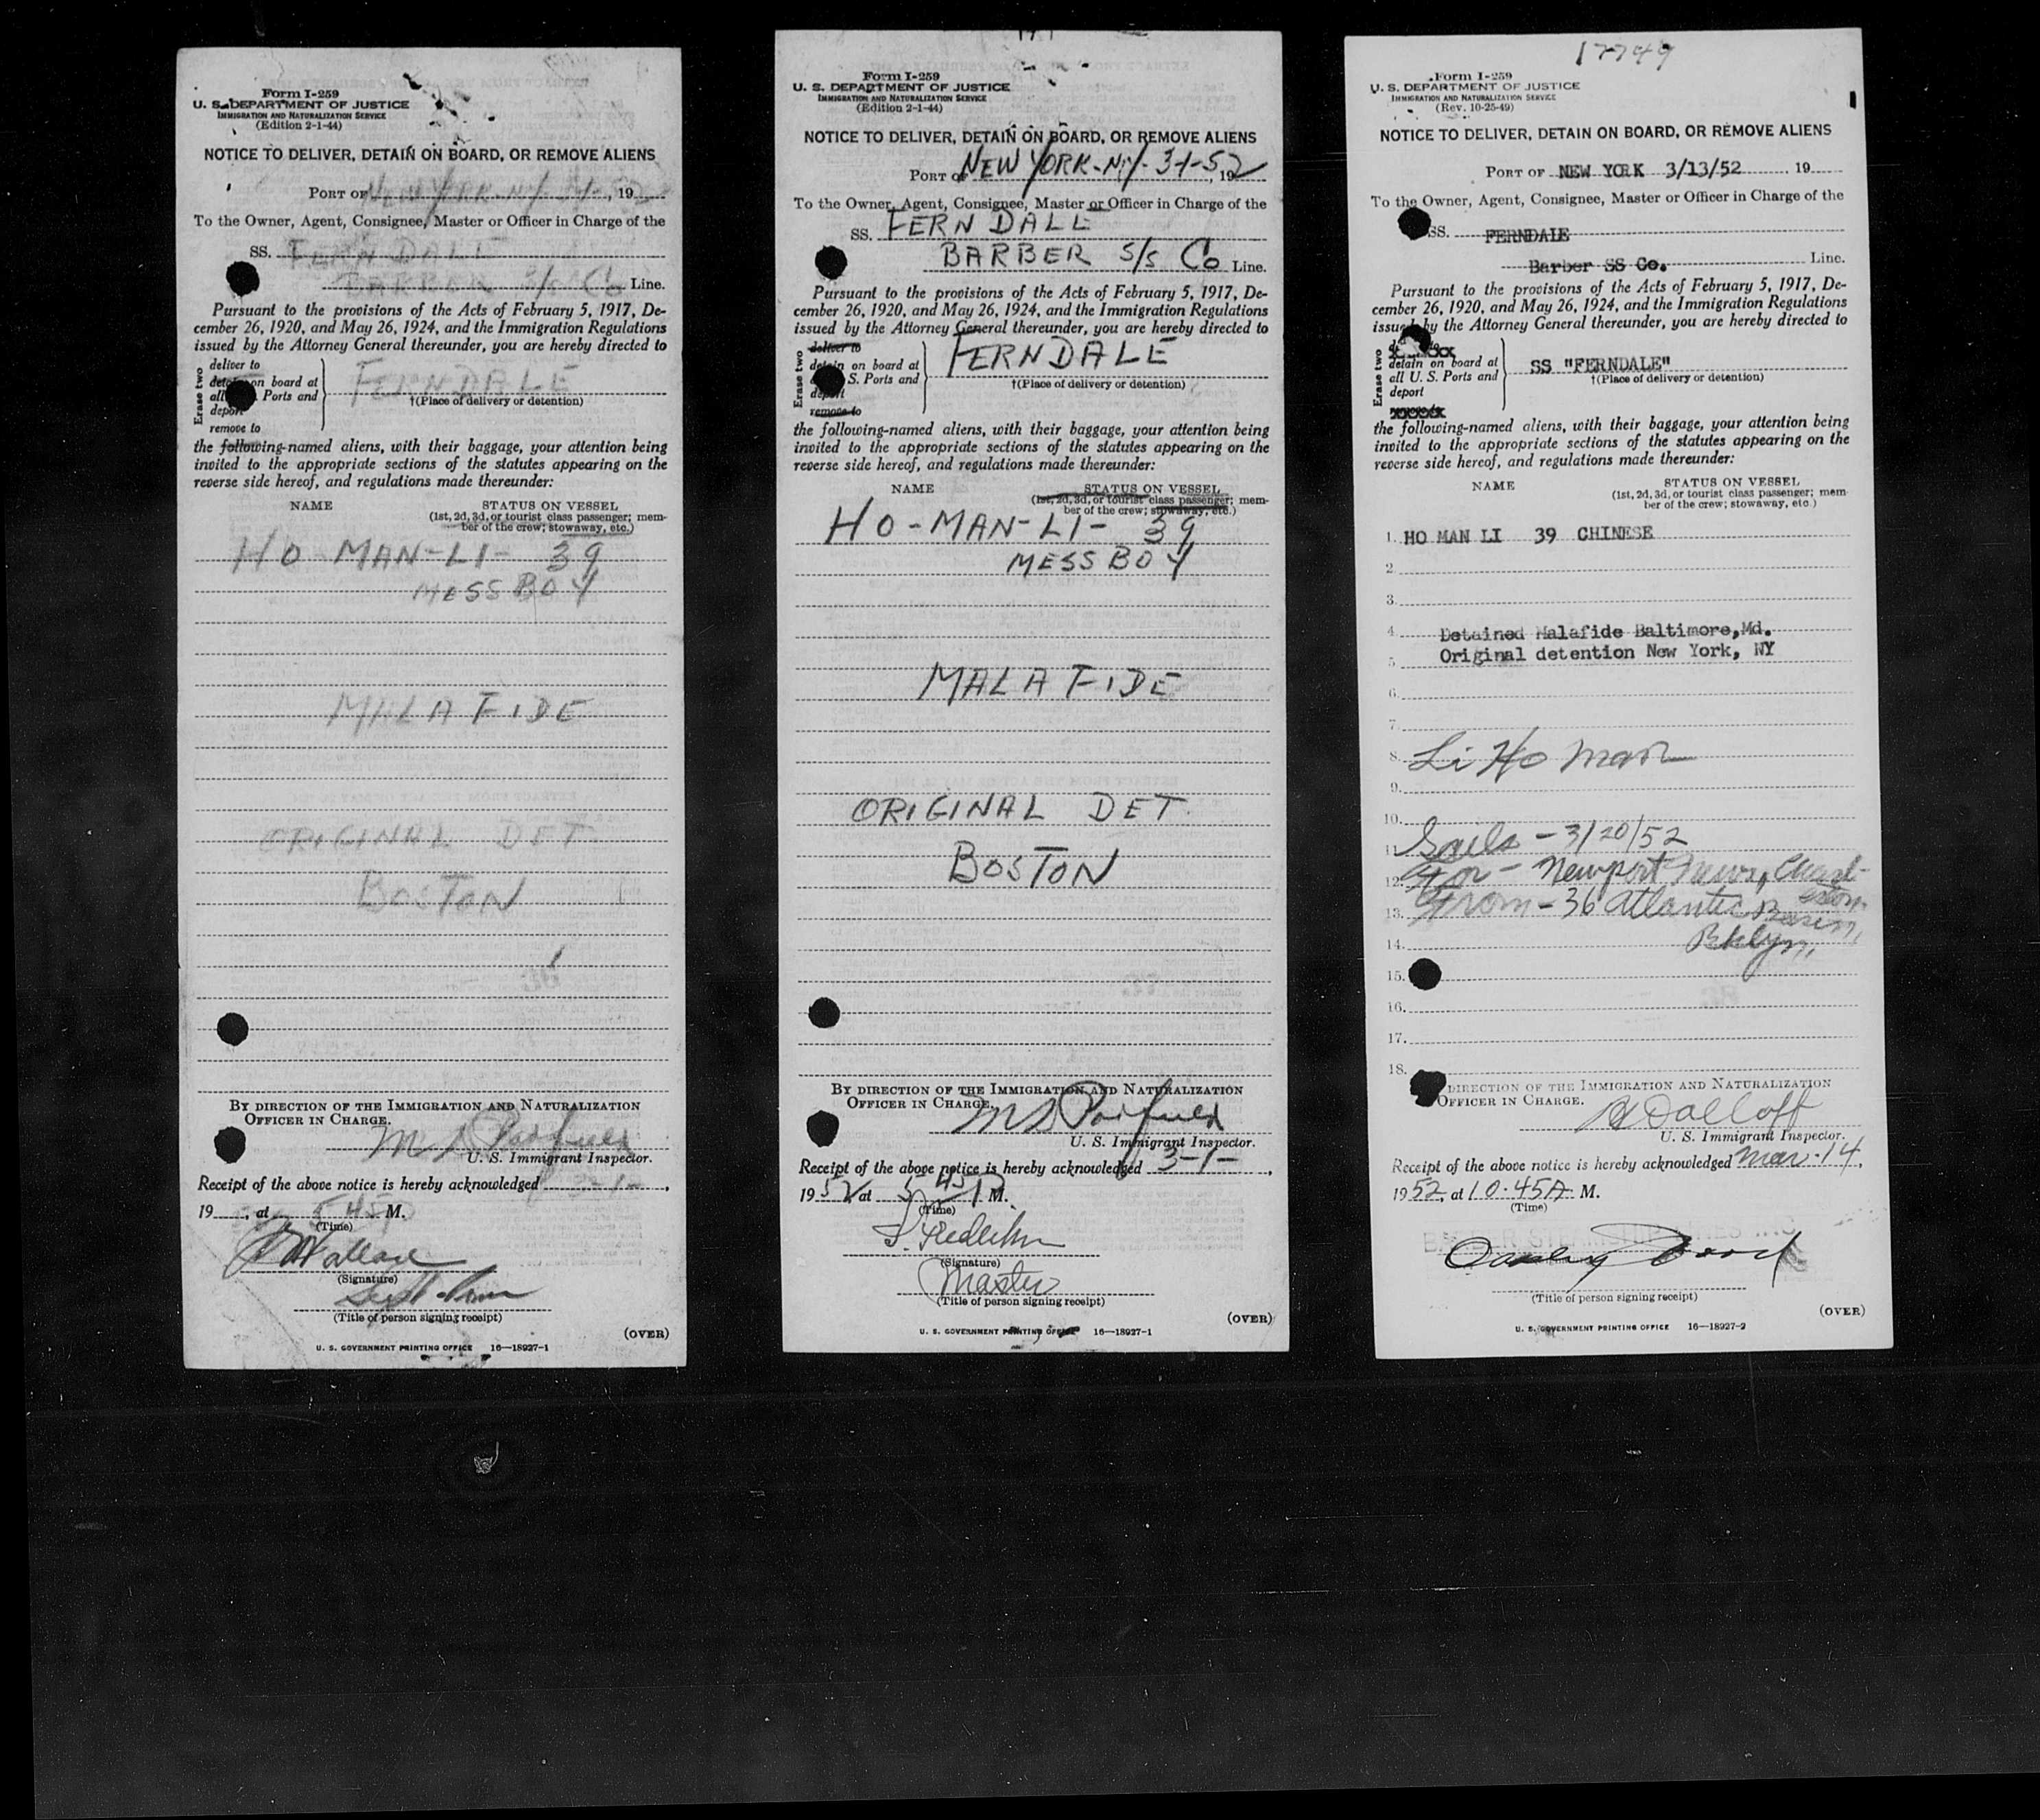 Form I-259
U. S. DEPARTMENT OF JUSTICE
IMMIGRATION AND NATURALIZATION SERVICE
(Edition 2-1-44)
NOTICE TO DELIVER, DETAIN ON BOARD, OR REMOVE ALIENS
PORT OF NEW YORK-NY- 3-1-52, 19
To the Owner, Agent, Consignee, Master or Officer in Charge of the
SS. FERN DALE
BARBER S/s Co Line.
Pursuant to the provisions of the Acts of February 5, 1917, De-
cember 26, 1920, and May 26, 1924, and the Immigration Regulations
issued by the Attorney General thereunder, you are hereby directed to
Erase two
deliver to
detain on board at
all Ports and
deport
remove to
FERNDALE
†(Place of delivery or detention)
the following-named aliens, with their baggage, your attention being
invited to the appropriate sections of the statutes appearing on the
reverse side hereof, and regulations made thereunder:
NAME STATUS ON VESSEL
(1st, 2d, 3d, or tourist class passenger; mem-
ber of the crew; stowaway, etc.)
HO MAN-LI- 39
MESS BOY
MALA FIDE
ORIGINAL DET.
BOSTON
BY DIRECTION OF THE IMMIGRATION AND NATURALIZATION
OFFICER IN CHARGE.
U. S. Immigrant Inspector.
Receipt of the above notice is hereby acknowledged 3-1-,
19, at 5 45 P M.
(Time)
Wallace
(Signature)
(Title of person signing receipt)
(OVER)
U. S. GOVERNMENT PRINTING OFFICE 16—18927-1
Form I-259
U. S. DEPARTMENT OF JUSTICE
IMMIGRATION AND NATURALIZATION SERVICE
(Edition 2-1-44)
NOTICE TO DELIVER, DETAIN ON BOARD, OR REMOVE ALIENS
PORT OF NEW YORK-NY- 3-1-52, 19
To the Owner, Agent, Consignee, Master or Officer in Charge of the
SS. FERN DALE
BARBER S/s Co Line.
Pursuant to the provisions of the Acts of February 5, 1917, De-
cember 26, 1920, and May 26, 1924, and the Immigration Regulations
issued by the Attorney General thereunder, you are hereby directed to
Erase two
deliver to
detain on board at
S. Ports and
deport
remove to
FERNDALE
†(Place of delivery or detention)
the following-named aliens, with their baggage, your attention being
invited to the appropriate sections of the statutes appearing on the
reverse side hereof, and regulations made thereunder:
NAME STATUS ON VESSEL
(1st, 2d, 3d, or tourist class passenger; mem-
ber of the crew; stowaway, etc.)
HO-MAN-LI- 39
MESS BOY
MALA FIDE
ORIGINAL DET.
BOSTON
BY DIRECTION OF THE IMMIGRATION AND NATURALIZATION
OFFICER IN CHARGE.
U. S. Immigrant Inspector.
Receipt of the above notice is hereby acknowledged 3-1-,
1952 at 5 45 P M.
(Time)
(Signature)
Master
(Title of person signing receipt)
(OVER)
U. S. GOVERNMENT PRINTING OFFICE 16—18927-1
17749
Form I-259
U. S. DEPARTMENT OF JUSTICE
IMMIGRATION AND NATURALIZATION SERVICE
(Rev. 10-25-49)
NOTICE TO DELIVER, DETAIN ON BOARD, OR REMOVE ALIENS
PORT OF NEW YORK 3/13/52, 19
To the Owner, Agent, Consignee, Master or Officer in Charge of the
SS. FERNDALE
Barber SS Co. Line.
Pursuant to the provisions of the Acts of February 5, 1917, De-
cember 26, 1920, and May 26, 1924, and the Immigration Regulations
issued by the Attorney General thereunder, you are hereby directed to
Erase two
detain on board at
all U. S. Ports and
deport
SS "FERNDALE"
†(Place of delivery or detention)
the following-named aliens, with their baggage, your attention being
invited to the appropriate sections of the statutes appearing on the
reverse side hereof, and regulations made thereunder:
NAME STATUS ON VESSEL
(1st, 2d, 3d, or tourist class passenger; mem-
ber of the crew; stowaway, etc.)
1. HO MAN LI 39 CHINESE
2.
3.
4. Detained Malafide Baltimore, Md.
5. Original detention New York, NY
6.
7.
8. Li Ho Man
9.
10.
11. Sails - 3/20/52
12. For - Newport News, Charl-
eston.
13. From - 36 Atlantic Basin,
14. Bklyn,
15.
16.
17.
18.
DIRECTION OF THE IMMIGRATION AND NATURALIZATION
OFFICER IN CHARGE.
U. S. Immigrant Inspector.
Receipt of the above notice is hereby acknowledged Mar. 14,
1952, at 10.45A M.
(Time)
(Title of person signing receipt)
(OVER)
U. S. GOVERNMENT PRINTING OFFICE 16—18927-2